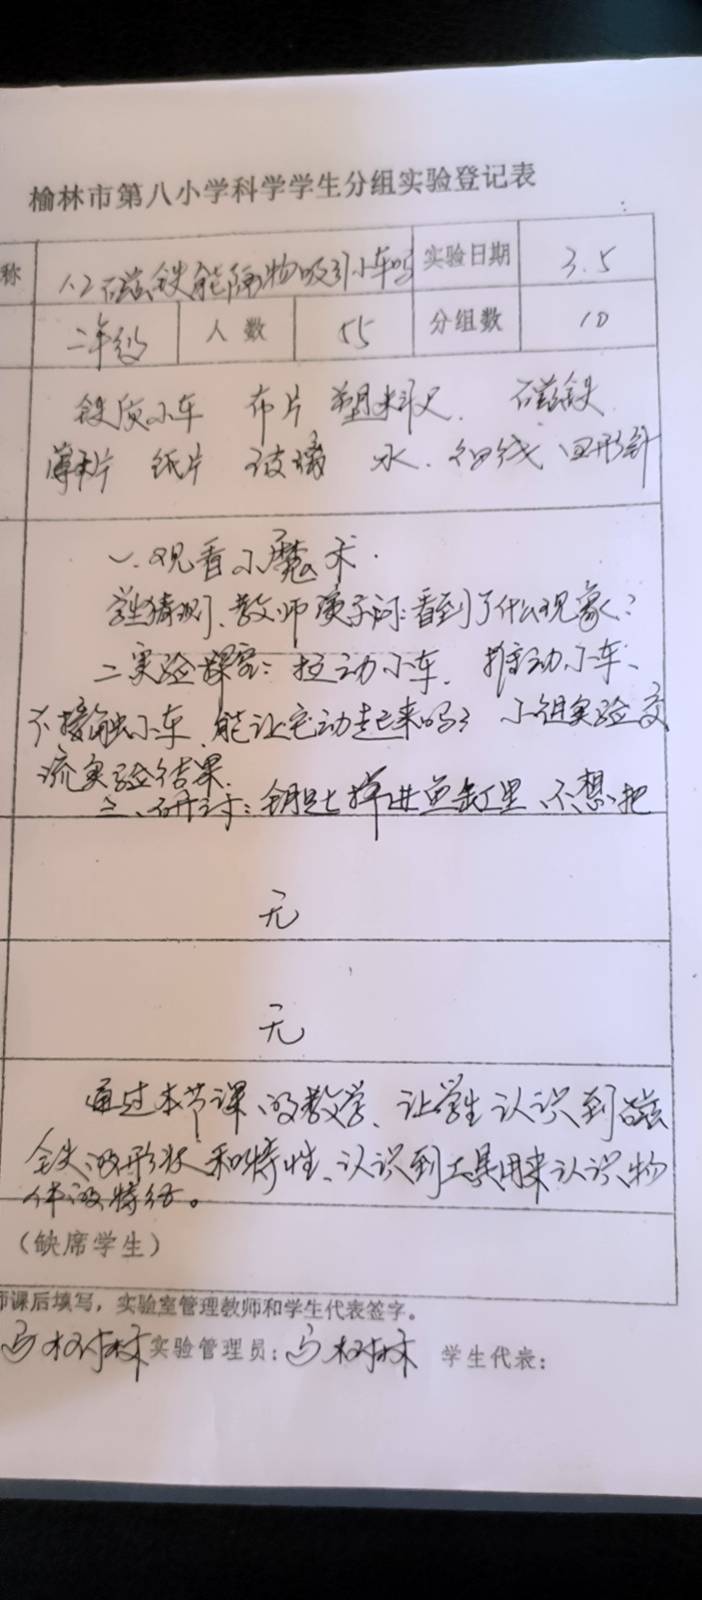 榆林市第八小学科学学生分组实验登记表
称 1.2磁铁能隔物吸引小车吗 实验日期 3.5
二年级 人数 55 分组数 10
铁质小车 布片 塑料尺. 磁铁
薄木片 纸片 玻璃 水. 细线 回形针
一.观看小魔术.
学生猜测、教师演示问:看到了什么现象?
二实验探究: 拉动小车. 推动小车、
不接触小车、能让它动起来吗? 小组实验交
流实验结果.
三、研讨: 钥匙掉进鱼缸里、不想把
无
无
通过本节课的教学、让学生认识到磁
铁的形状和特性、认识到工具用来认识物
体的特征。
(缺席学生)
师课后填写，实验室管理教师和学生代表签字。
马树林 实验管理员: 马树林 学生代表: